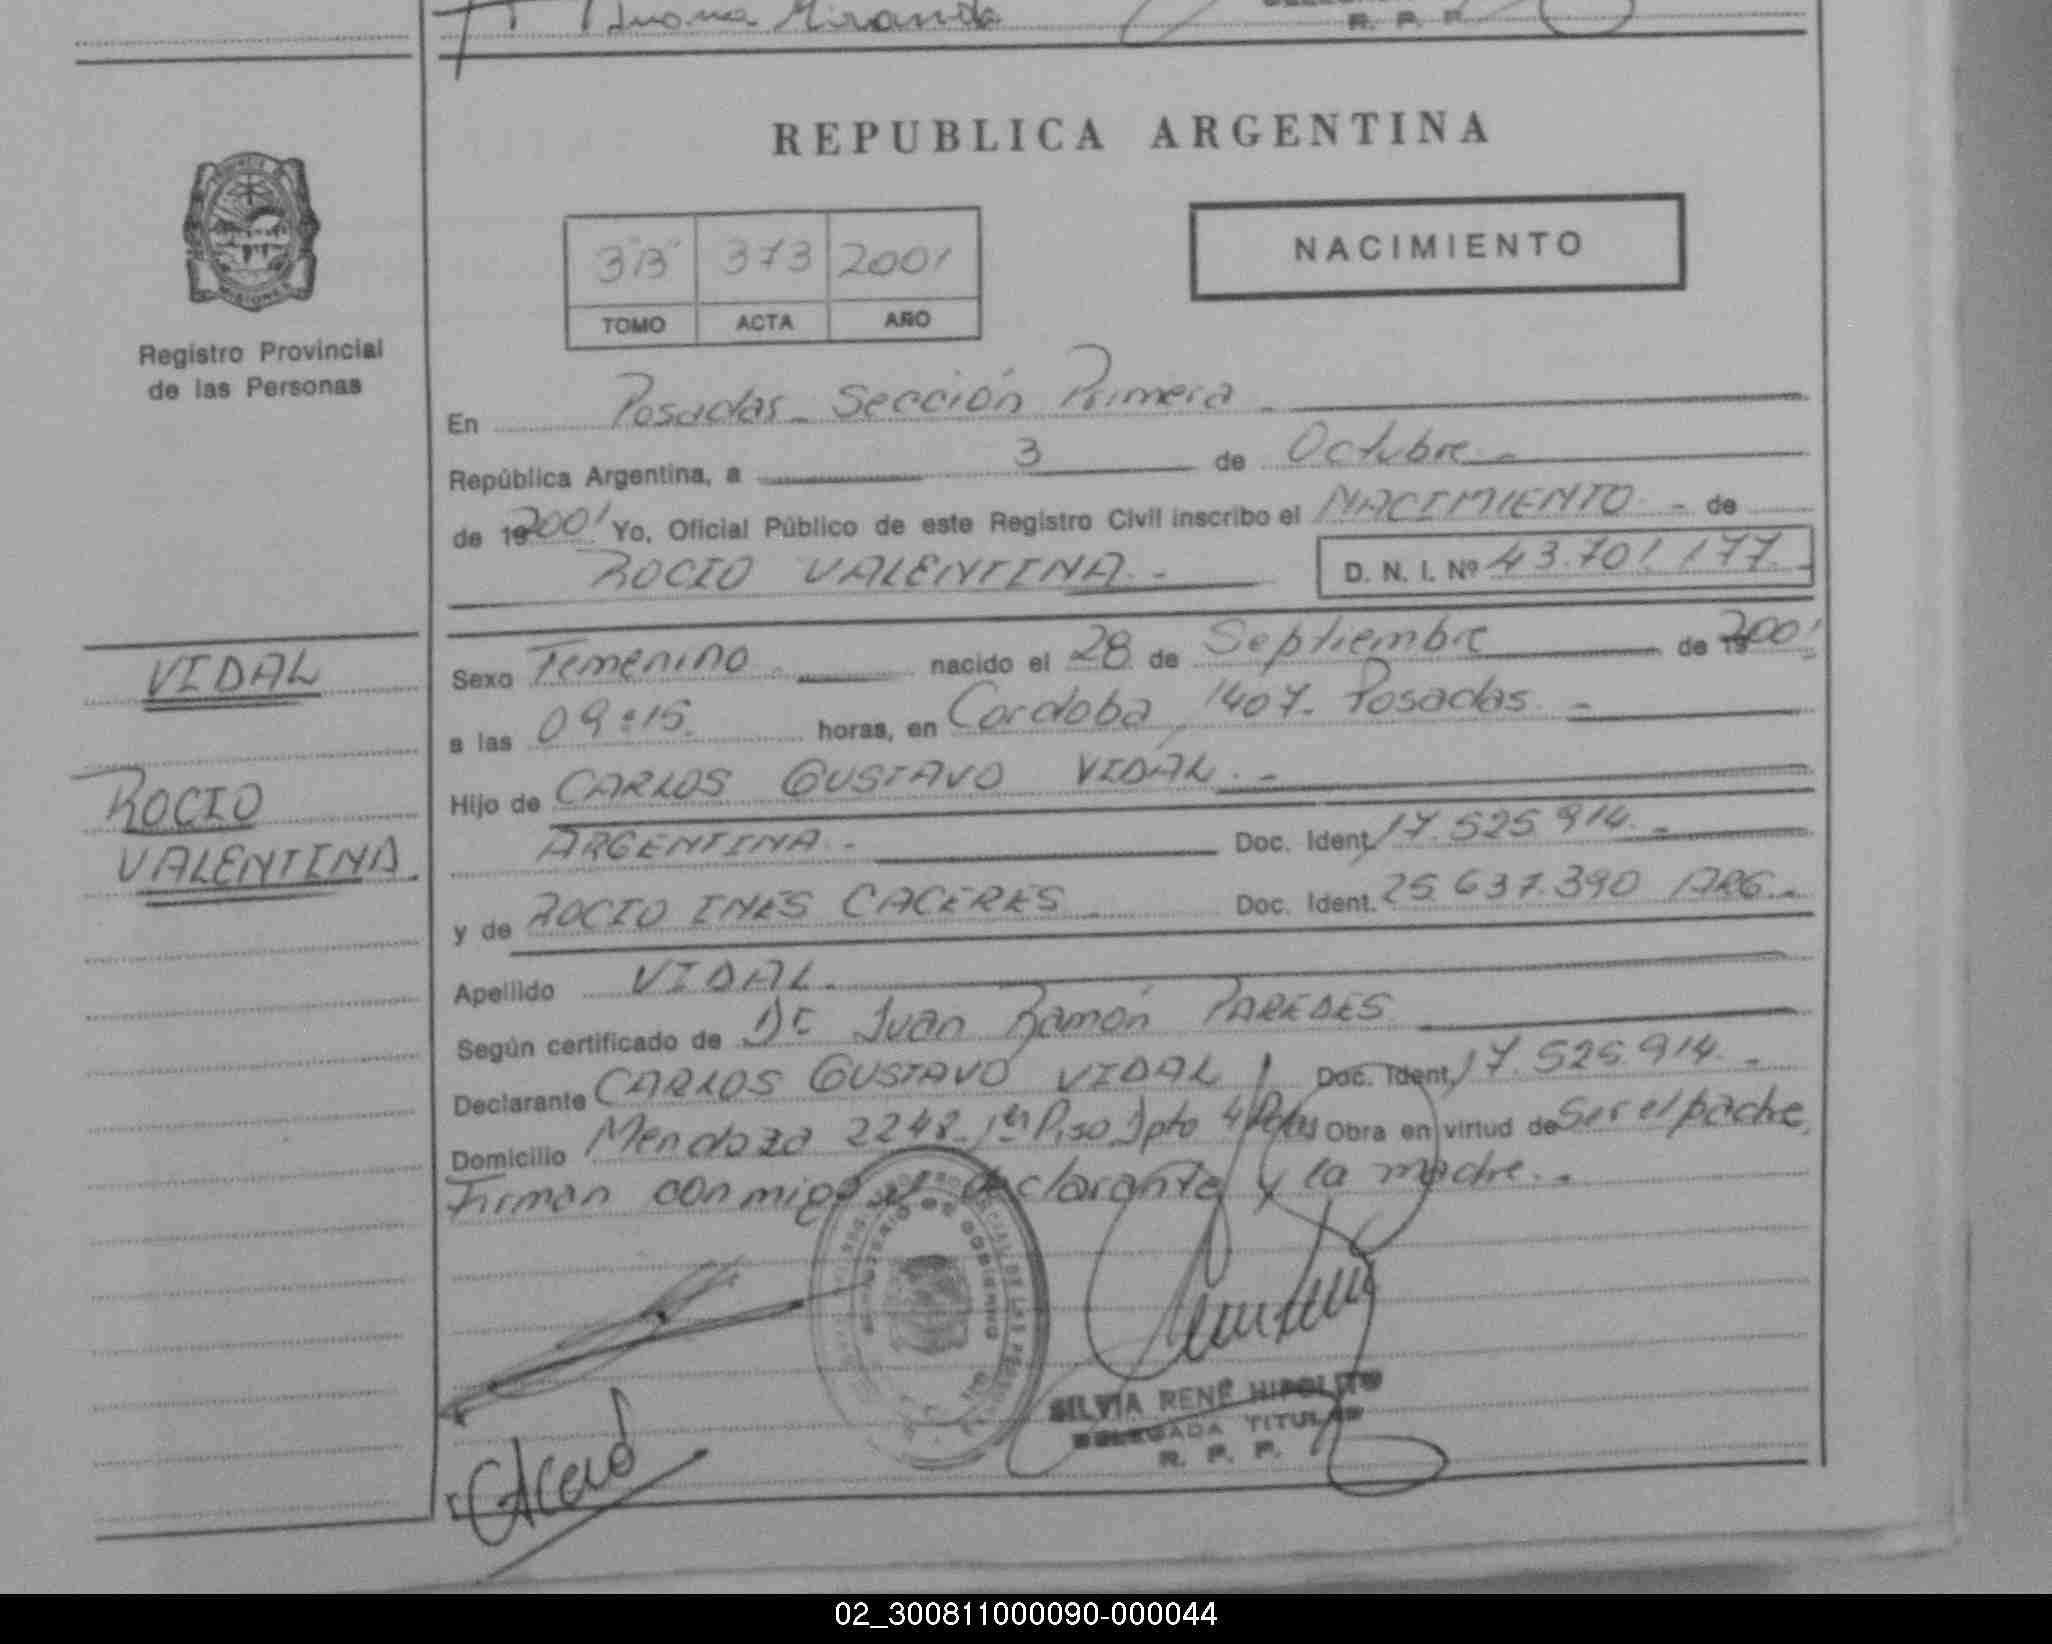 Juana Miranda
R. P. P.
REPUBLICA ARGENTINA
3"B" 373 2001
TOMO ACTA AÑO
NACIMIENTO
MISIONES
Registro Provincial
de las Personas
En Posadas - Sección Primera -
República Argentina, a 3 de Octubre -
de 192001 Yo, Oficial Público de este Registro Civil inscribo el NACIMIENTO - de
ROCIO VALENTINA. - D. N. I. Nº 43.701.177. -
VIDAL
ROCIO
VALENTINA.
Sexo Femenino. nacido el 28 de Septiembre de 192001.
a las 09:15. horas, en Cordoba 1407 - Posadas. -
Hijo de CARLOS GUSTAVO VIDAL. -
ARGENTINA. - Doc. Ident. 17.525.914. -
y de ROCIO INES CACERES - Doc. Ident. 25.637.390 ARG. -
Apellido VIDAL.
Según certificado de Dr Juan Ramón PAREDES
Declarante CARLOS GUSTAVO VIDAL Doc. Ident. 17.525.914. -
Domicilio Mendoza 2248 - 1er Piso Dpto 4 Pdas Obra en virtud de Ser el padre,
Firman conmigo el declarante y la madre. -
MINISTERIO DE GOBIERNO
SILVIA RENÉ HIPOLITO
DELEGADA TITULAR
R. P. P.
02_300811000090-000044